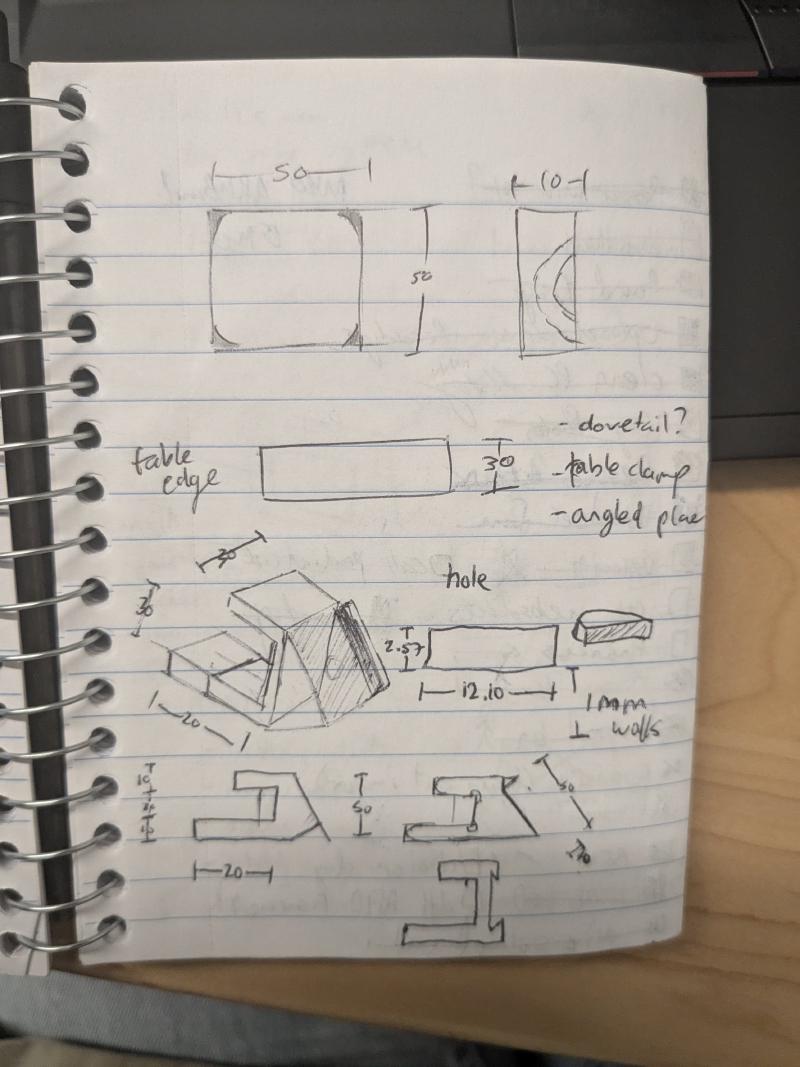 50
10
50
table
edge
30
- dovetail?
- table clamp
- angled plae
30
30
20
hole
2.57
12.10
1mm
walls
50
20
50